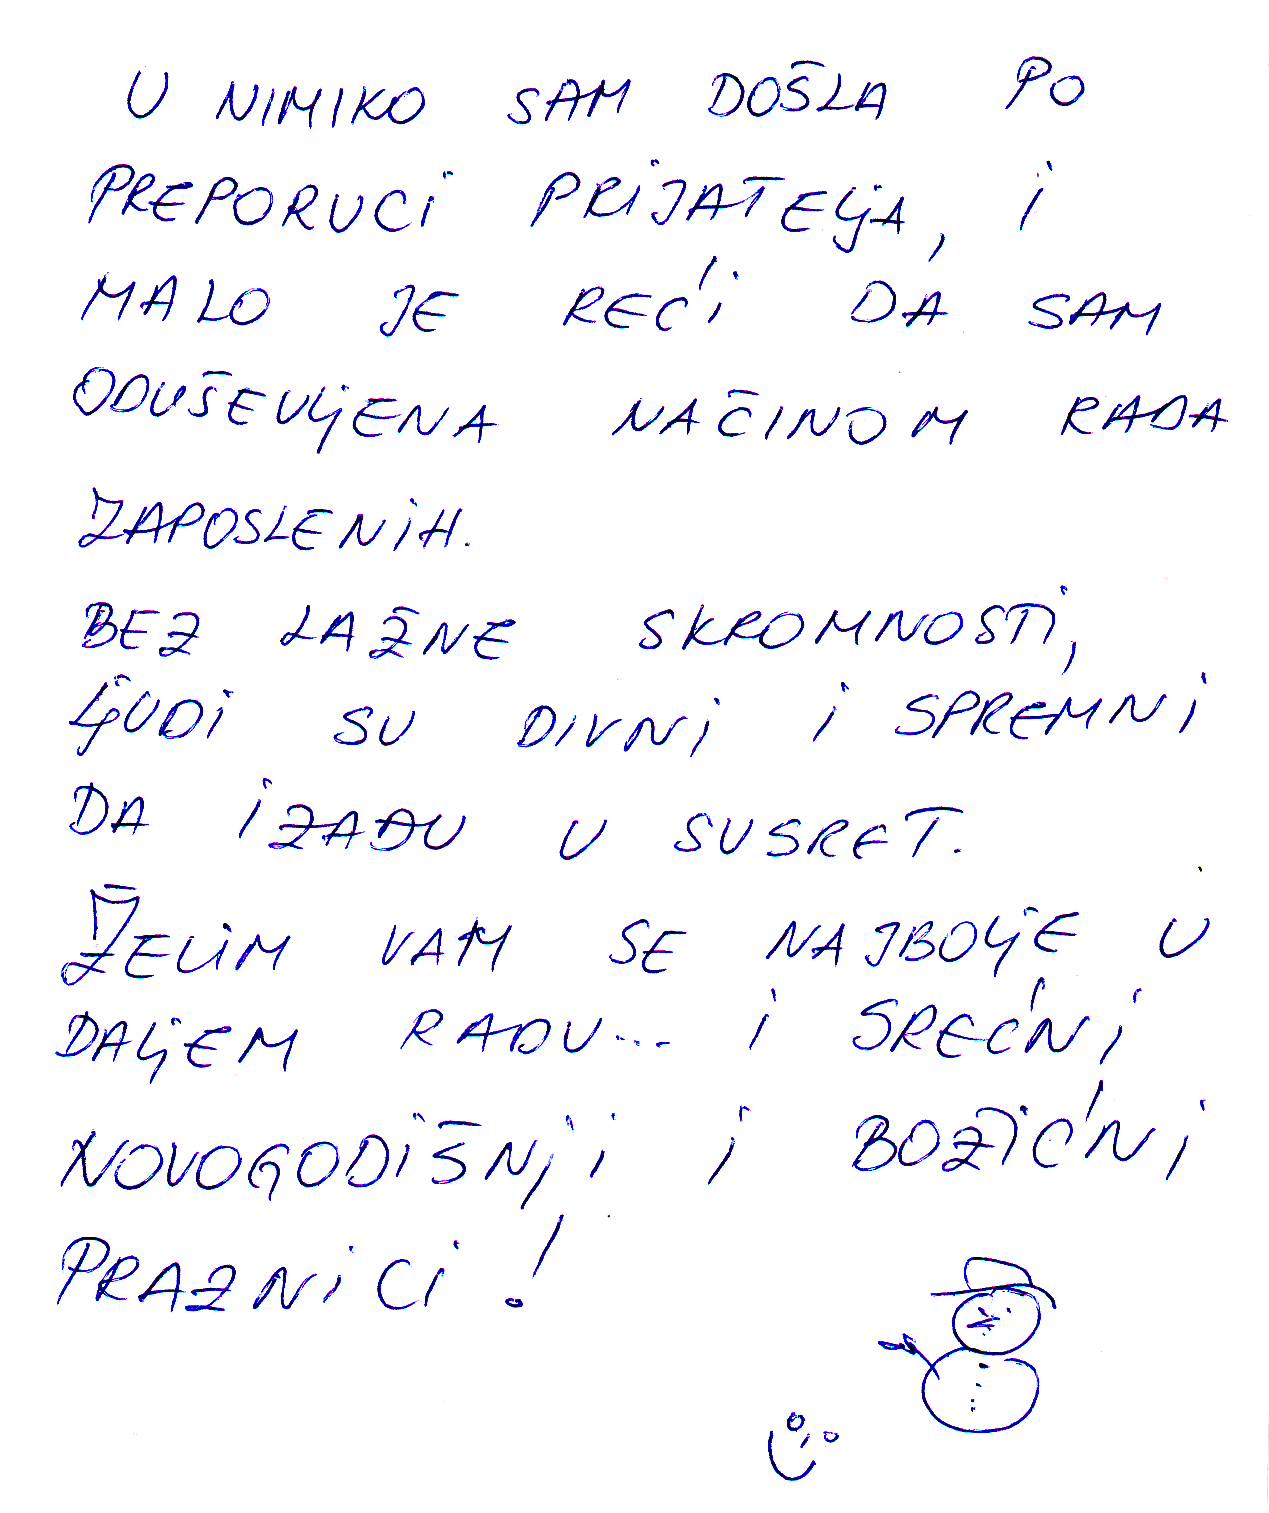 U NIMIKO SAM DOŠLA PO
PREPORUCI PRIJATELJA, I
MALO JE REĆI DA SAM
ODUŠEVLJENA NAČINOM RADA
ZAPOSLENIH.
BEZ LAŽNE SKROMNOSTI,
LJUDI SU DIVNI I SPREMNI
DA IZAĐU U SUSRET.
ŽELIM VAM SE NAJBOLJE U
DALJEM RADU... I SREĆNI
NOVOGODIŠNJI I BOŽIĆNI
PRAZNICI!